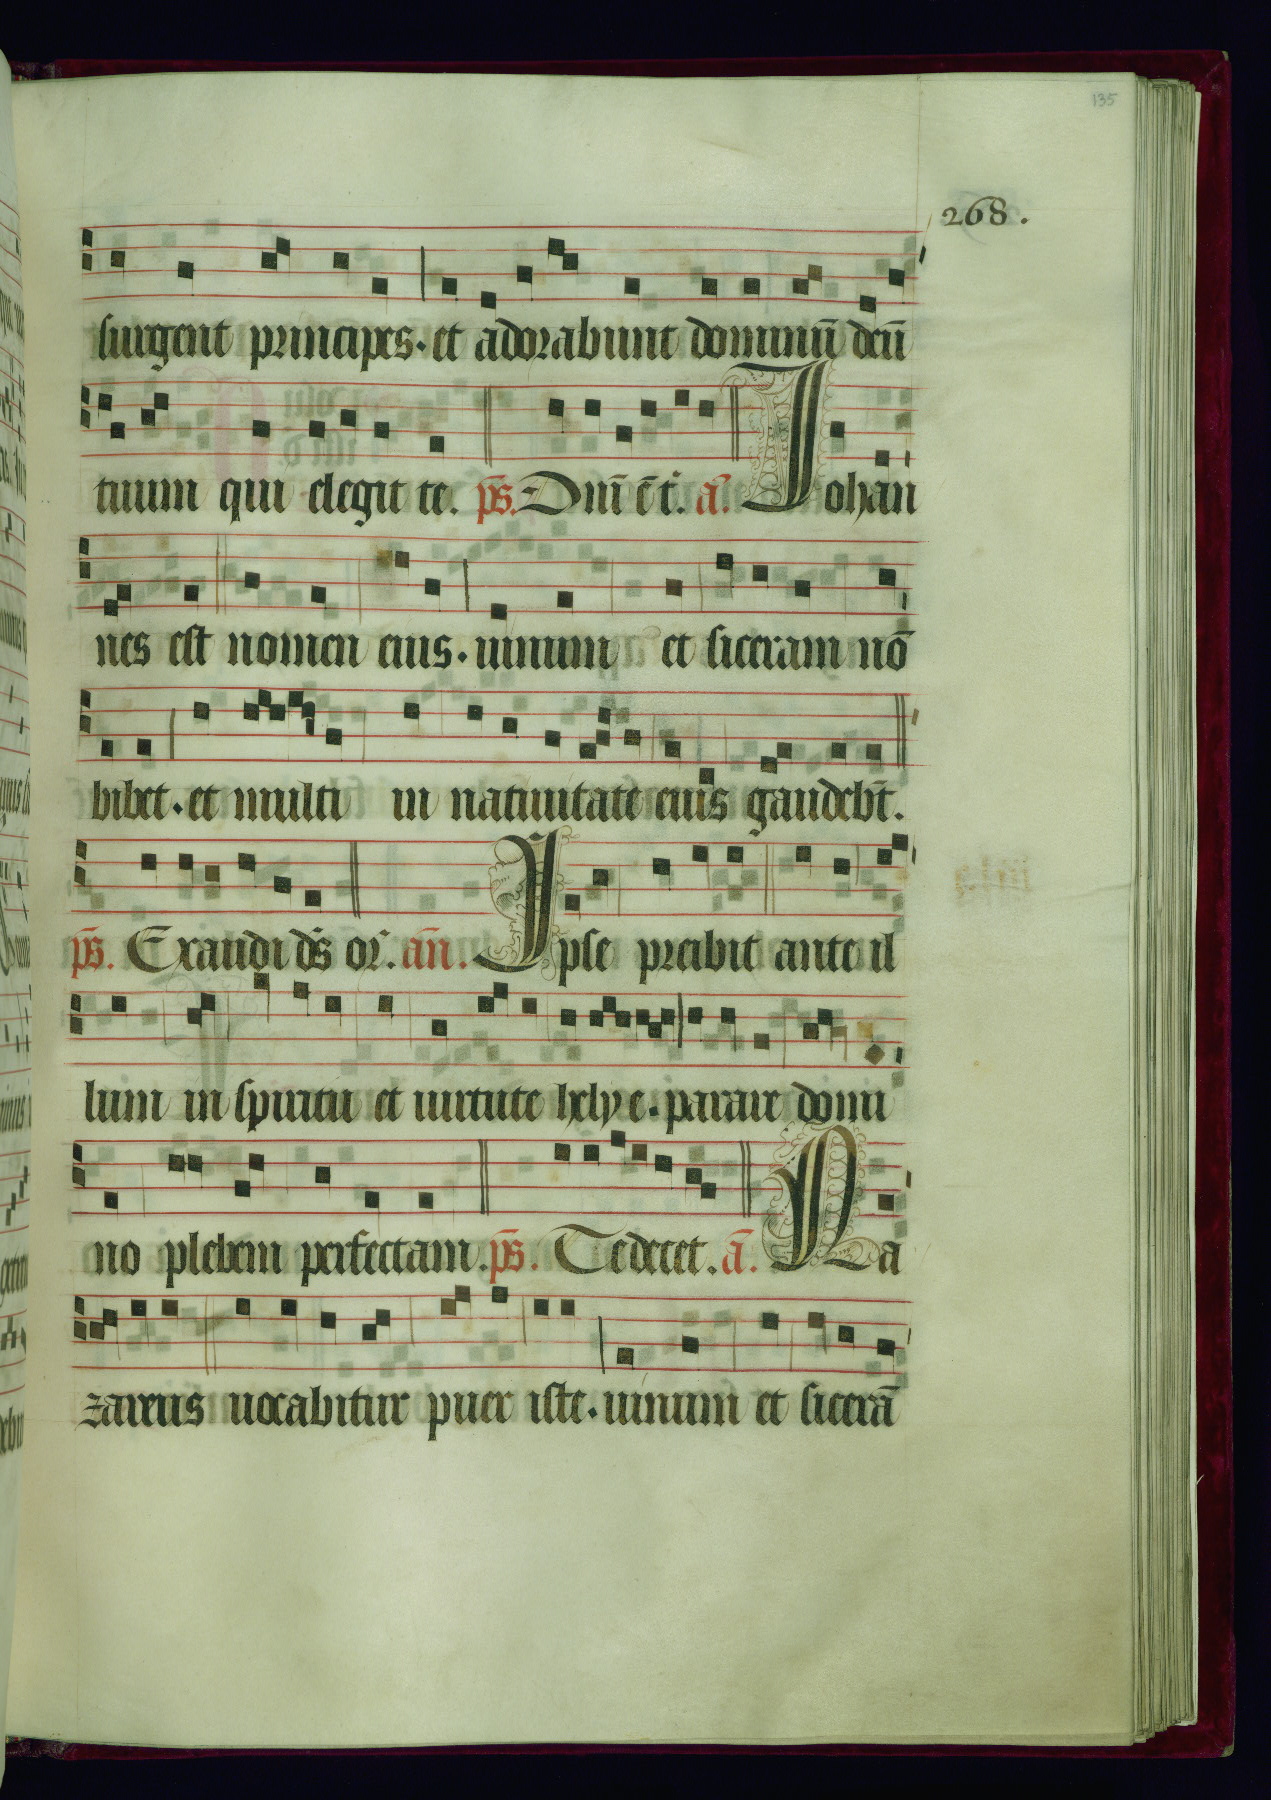 135
268.
surgent principes. et adorabunt dominū deū
tuum qui elegit te. ps̄. Dnī ē t̄. a͞. Johan
nes est nomen eius. uinum et siceram nō
bibet. et multi in natiuitate eius gaudebt̄.
ps̄. Exaudi ds̄ or̄. an̄. Ipse preibit ante il
lum in spiritu et uirtute helye. parare domi
no plebem perfectam. ps̄. Te decet. a͞. Na
zareus uocabitur puer iste. uinum et sicerā